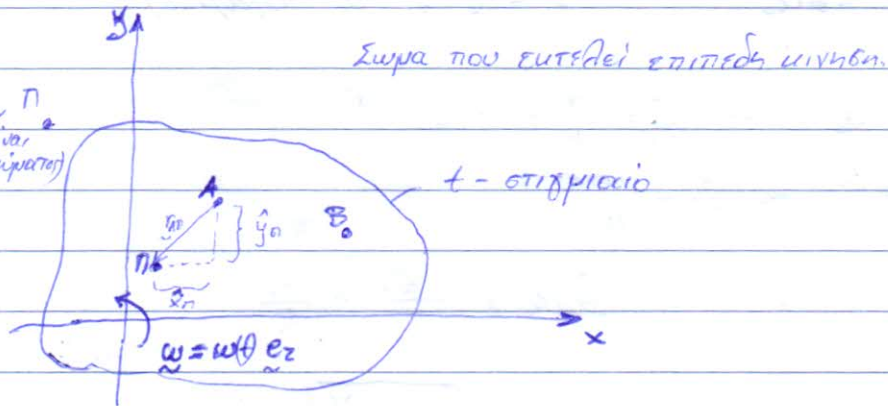 y
Σωμα που εκτελεί επιπεδη κινηση.
Π
t - στιγμιαίο
A
B
Π
x
ω = ω(t) e_z